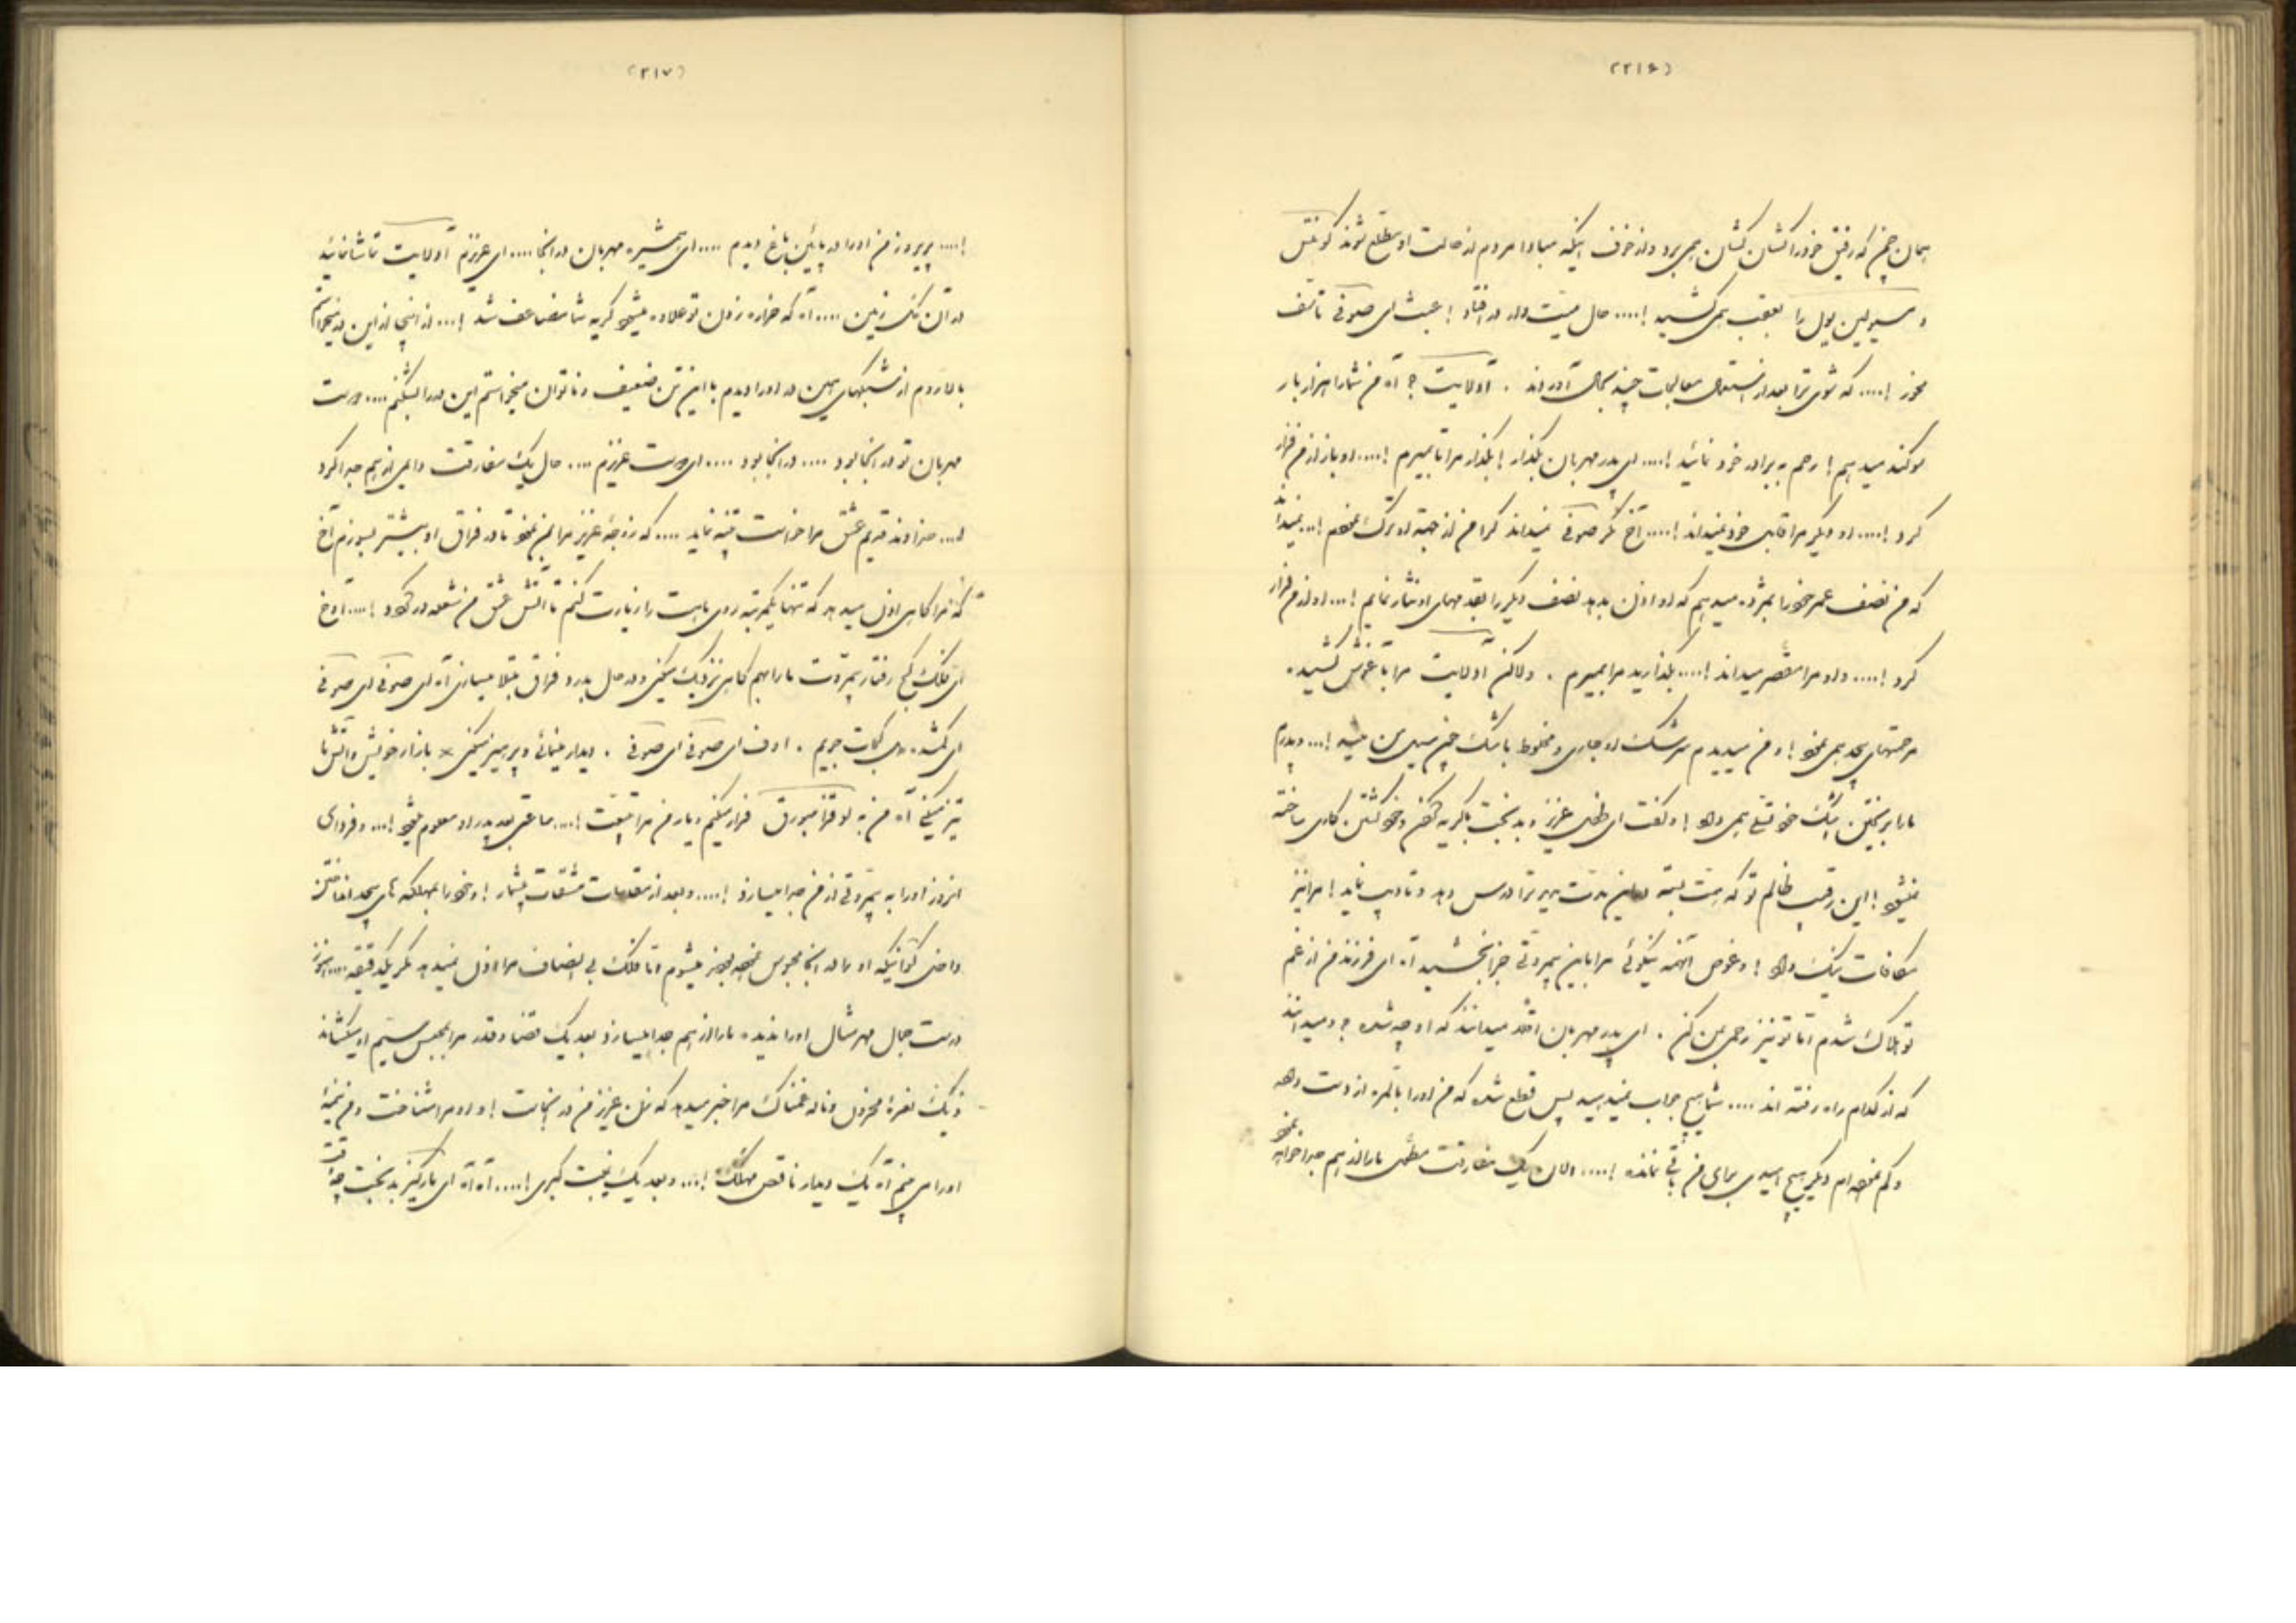 (۲۱۶)
همان چمن که رفیق خود را کشان کشان همی برد و از خوف اینکه مبادا مردم از حالت او مطلع شوند
و سیو لین پول را بعقب همی کشید !.... حال میت وار در افتاد ! عبث ای صوفی تأسف
مخور !.... که شوی ترا بعد از استعمال معالجات چند بحال آوردند . آدلایت ؟ آه من شما را هزار بار
سوگند میدهم ! رحم به برادر خود نمائید !.... ای پدر مهربان بگذار ! بگذار مرا تا بمیرم !.... او باز از من فرار
کرد !.... او دیگر مرا قابل خود نمیداند !.... آخ مگر صوفی نمیداند که من از جهة او ترک
که من نصف عمر خود را بمژده میدهم که او اذن بدهد نصف دیگر را بقدمهای او نثار نمایم !... او از من فرار
کرد !.... و او مرا مقصر میداند !.... بگذارید مرا بمیرم . ولاکن آدلایت مرا بآغوش کشیده
مرحمتهای بیحد همی نمود ! و من میدیدم سرشک او جاری و مخلوط باشک خونین من میشد !... و پدرم
ما را بریختن اشک خود تسلی همی داد ! و گفت ای طفل عزیز و بدبخت با گریه کردن و خود کشتن کاری ساخته
میشود ! این رقیب ظالم تو که همت بسته در این مدت مدید ترا درس دهد و تأدیب نماید ! مرا نیز
مکافات نیک داد ! و عوض آنهمه نیکوئی مرا باین بیمروتی جزا بخشید آه ای فرزند من از غم
تو هلاک شدم اما تو نیز رحمی بمن کن . ای پدر مهربان آقند میدانند که او چه شده ؟ و میدانند
که از کدام راه رفته اند .... شما هیچ جواب نمیدهید پس قطع شده که من او را بالمره از دست داده
و گم نموده ام دیگر هیچ امیدی برای من باقی نمانده !.... الان یک مفارقت مطلق ما را از هم جدا خواهد نمود
(۲۱۷)
!.... پریروز من او را در پائین باغ دیدم .... ای همشیره مهربان در آنجا .... ای عزیزم آدلایت تماشا نمائید
در آن تک زمین .... آه که خواره زدن تو علاوه میشود گریه شما مضاعف شد !... از اینجا از این در میخواستم
بالا روم از شبکهای همین در او را دیدم با این تن ضعیف و ناتوان میخواستم این در را بشکنم .... دوست
مهربان تو در آنجا بود .... در آنجا بود .... ای دوست عزیزم .... حال یک مفارقت دایمی از هم جدا کرد
و.... خداوند قدیم عشق مرا خواست تنبیه نماید .... که زوجهٔ عزیز مرا بمن نمود تا در فراق او بیشتر بسوزم آخ
که مرا گاهی اذن میدهد که تنها یکمرتبه روی ماهت را زیارت کنم تا آتش عشق من شعله ور گردد !.... آوخ
ای فلک کج رفتار بیمروت ما را بهم گاهی نزدیک میکنی و در حال بدرد فراق مبتلا میسازی آه ای صوفی ای صوفی
ای گمشده من کجات جویم . اوف ای صوفی ای صوفی . دیدار مینمائی و پرهیز میکنی × بازار خویش و آتش ما
تیز میکنی آه من به لوقزامبورق فرار میکنم و یار من مرا تبعیت !.... ما عقب بعد پدر او معلوم میشود !... و فردای
آنروز او را به بیمروتی از من جدا میسازد !.... و بعد از مقدمات مشقات بیشمار ! و خود را بمهلکه های بیحد انداختن
و از اینکه او را در آنجا محبوس نموده بودند میشوم اما فلک بی انصاف مرا اذن نمیدهد مگر یکدقیقه .... هنوز
درست جمال مهر مثال او را ندیده ما را از هم جدا میسازد بعد یک قضا و قدر مرا بمجلس سیم او میکشاند
و یک نعرهٔ محزون و ناله غمناک مرا خبر میدهد که زن عزیز من در اینجاست ! و او مرا شناخت و من نیمهٔ
او را می بینم آه یک دیدار ناقص مهلک !... و بعد یک غیبت کبری !.... آه آه ای مارکیز بدبخت چه وقت